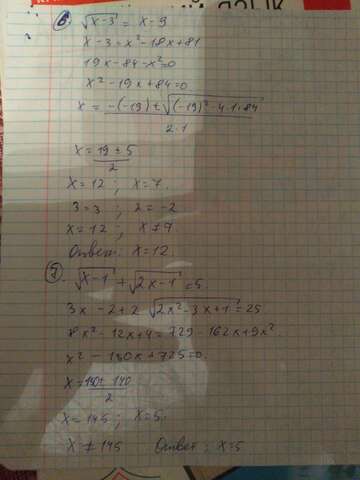 в) √(x-3) = x-9
x-3 = x²-18x+81
19x-84-x²=0
x²-19x+84=0
x = (-(-19) ± √((-19)²-4·1·84)) / (2·1)
x = (19 ± 5) / 2
x=12 ; x=7.
3=3 ; 2=-2
x=12 ; x≠7
Ответ: x=12.
√(x-1) + √(2x-1) = 5.
3x-2+2√(2x²-3x+1) = 25
8x²-12x+4=729-162x+9x².
x²-150x+725=0.
x = (150 ± 140) / 2
x=145 ; x=5.
x≠145 Ответ: x=5